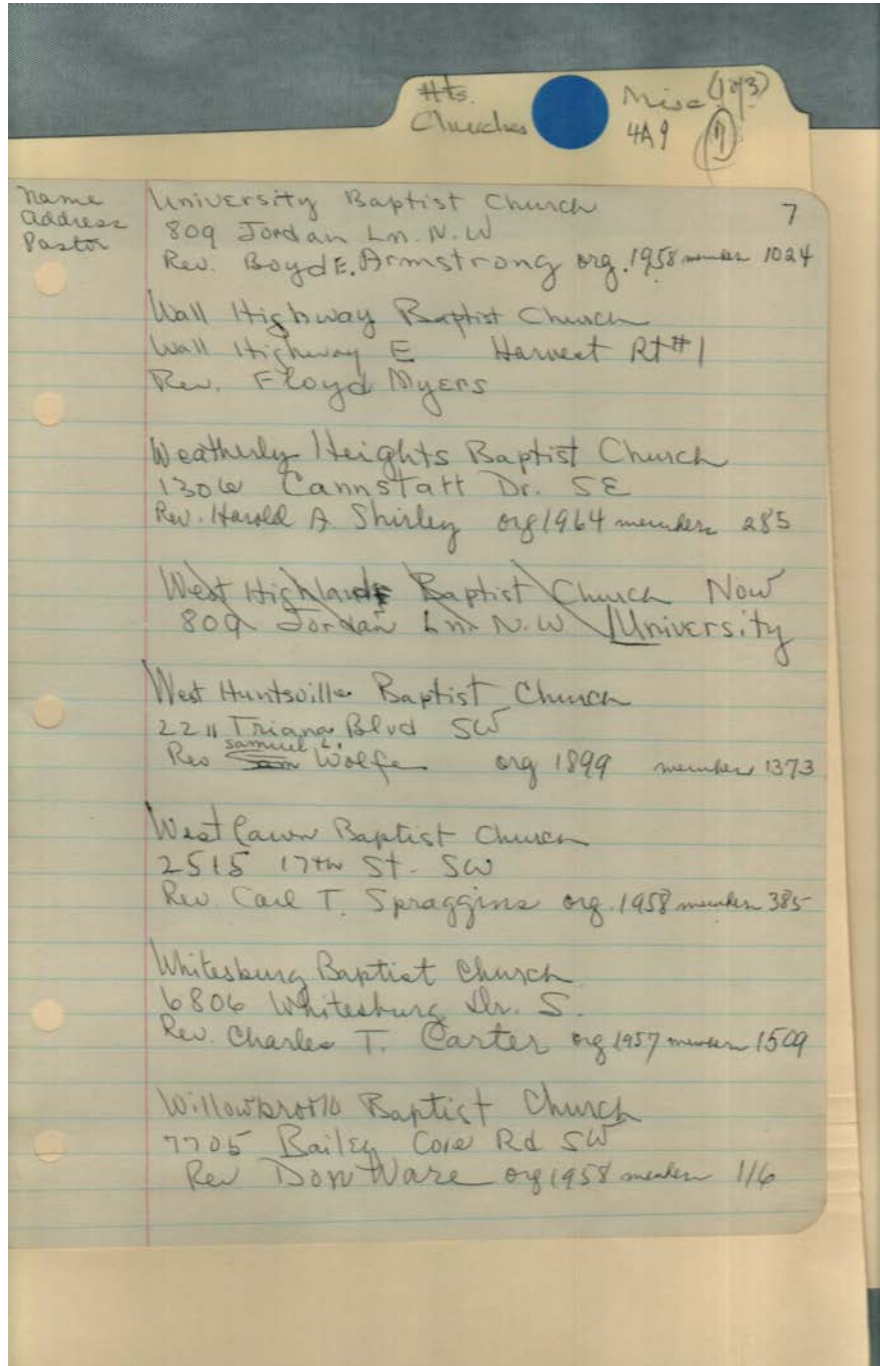 Hts. Misc (1 of 3)
Churches 4A9 (7)
Name
Address
Pastor
7
University Baptist Church
809 Jordan Ln. N.W
Rev. Boyd E. Armstrong org. 1958 member 1024
Wall Highway Baptist Church
Wall Highway E Harvest Rt #1
Rev. Floyd Myers
Weatherly Heights Baptist Church
1306 Cannstatt Dr. SE
Rev. Harold A Shirley org 1964 members 285
West Highlands Baptist Church Now
809 Jordan Ln. N.W University
West Huntsville Baptist Church
2211 Triana Blvd SW
Samuel L.
Rev Sam Wolfe org 1899 member 1373
West Lawn Baptist Church
2515 17th St. SW
Rev. Carl T. Spraggins org. 1958 member 385
Whitesburg Baptist Church
6806 Whitesburg Dr. S.
Rev. Charles T. Carter org 1957 member 1509
Willowbrook Baptist Church
7705 Bailey Cove Rd SW
Rev Don Ware org 1958 member 116